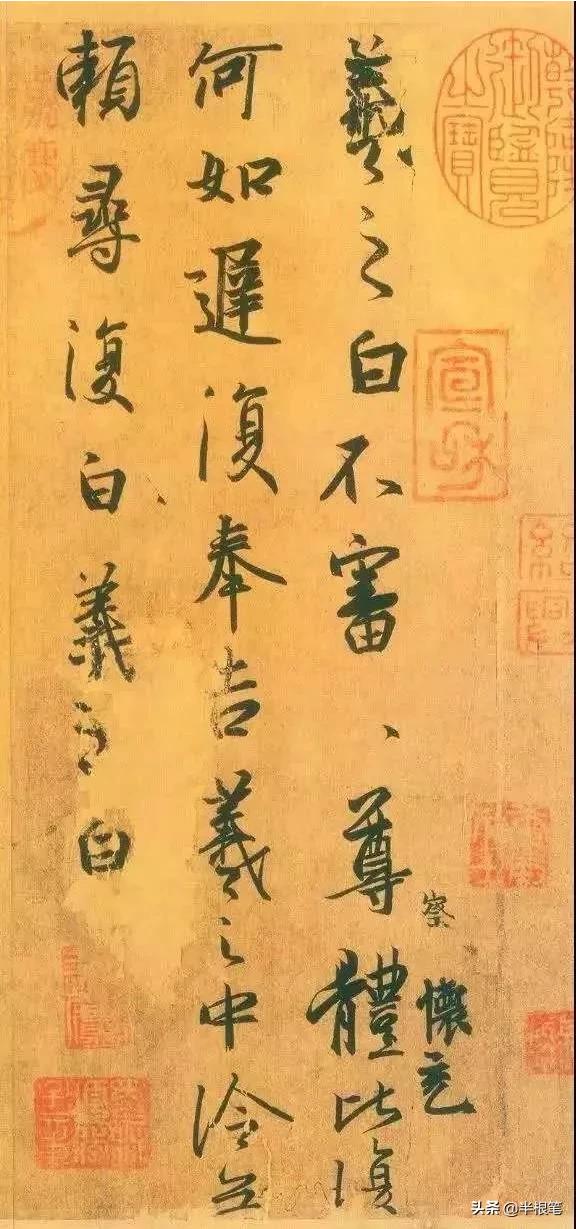 乾隆御覽之寶
宣和
紹興
羲之白不審尊體比復
察
懷充
何如遲復奉告羲之中冷無
賴尋復白羲之白
头条 @半根笔